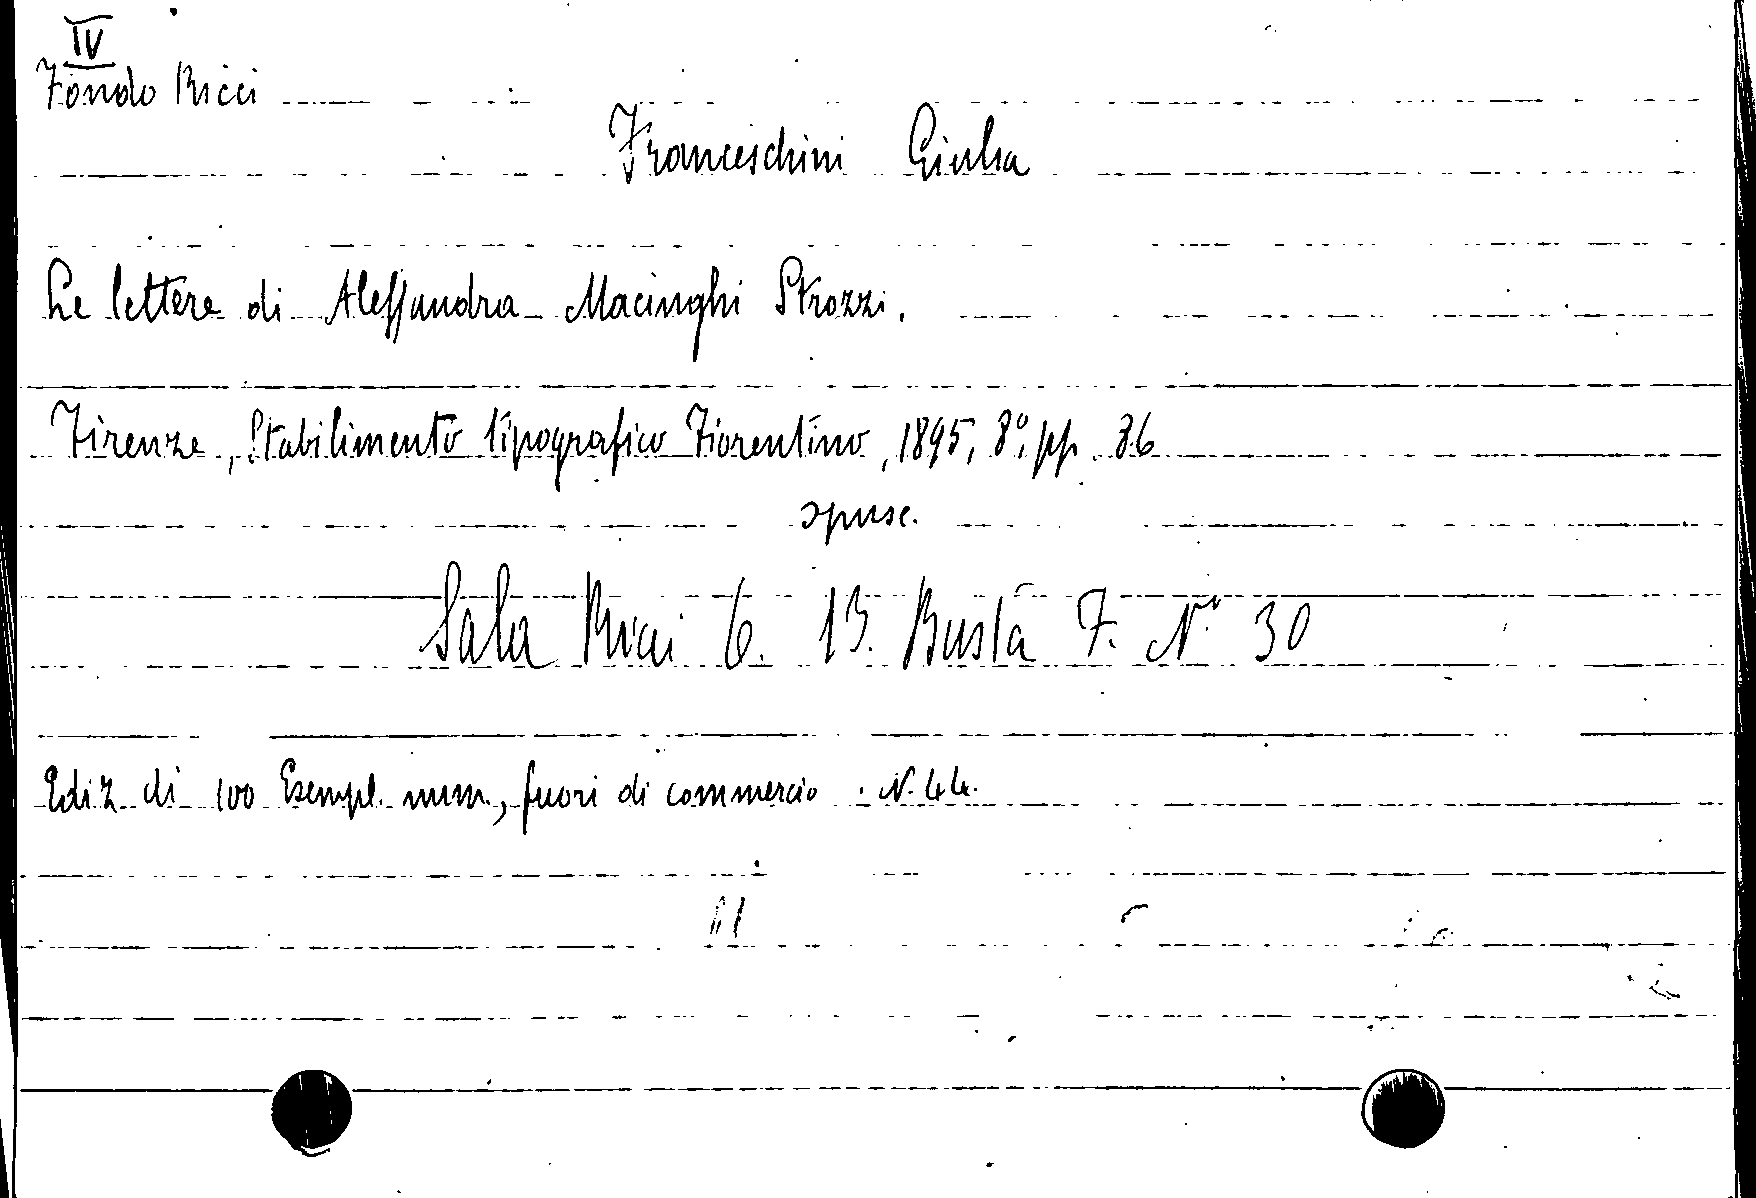 IV
Fondo Ricci
Franceschini Giulia
Le lettere di Alessandra Macinghi Strozzi.
Firenze, Stabilimento tipografico Fiorentino, 1895, 8°, pp. 36
opusc.
Sala Ricci 6. 13. Busta 7. N° 30
Ediz di 100 Esempl. num., fuori di commercio. N. 44.